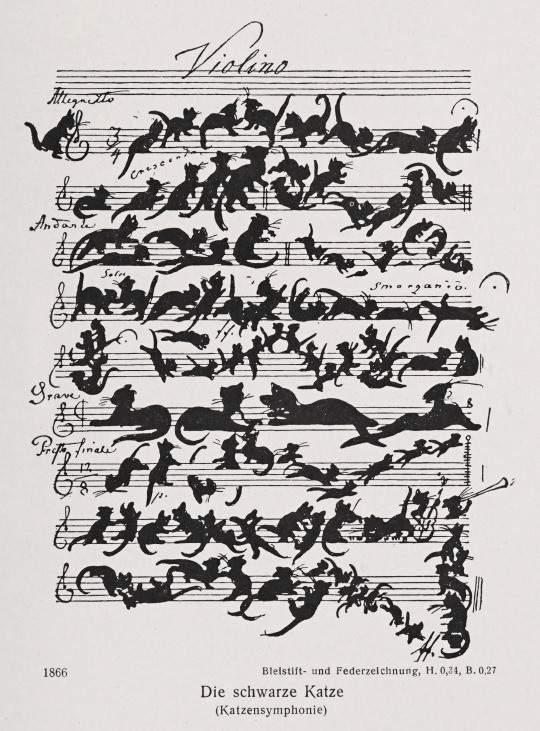 Violino
Allegretto
3
4
crescendo
Andante
Solo
smorzando.
ff.
Grave
Presto finale
12
8
p.
ff.
1866
Bleistift- und Federzeichnung, H. 0,34, B. 0,27
Die schwarze Katze
(Katzensymphonie)